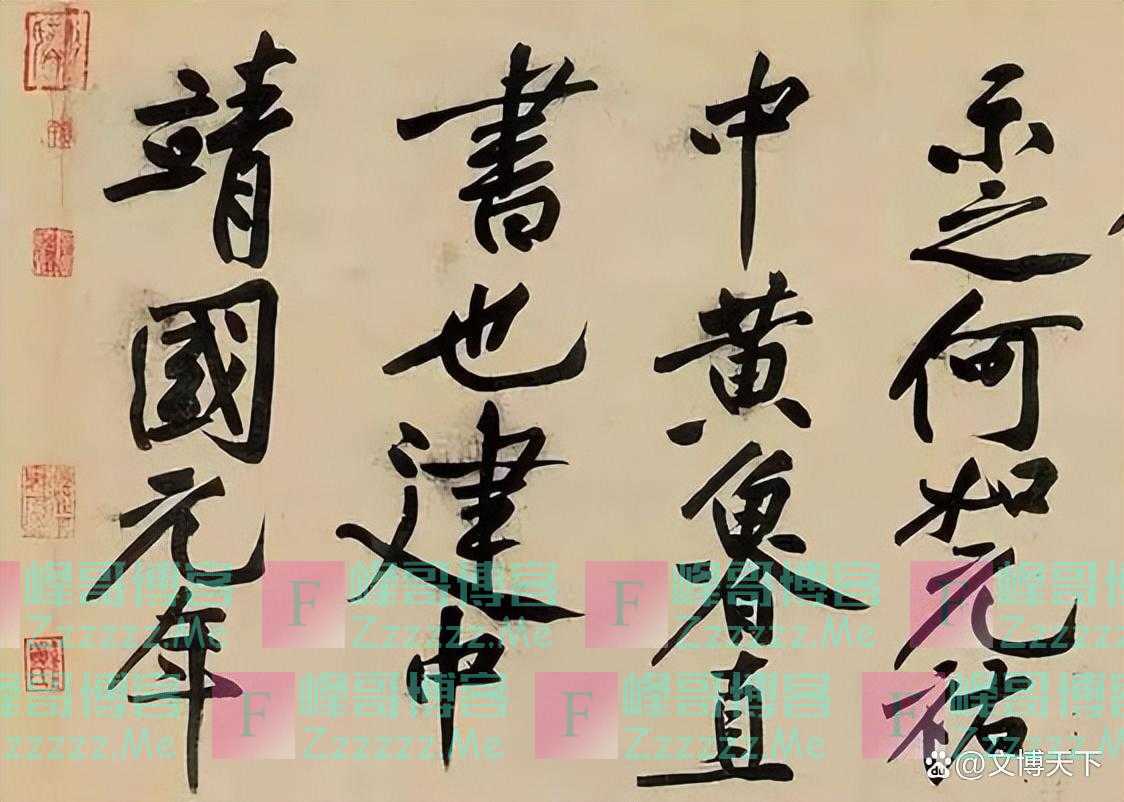 示之何如元祐
中黄魯直
書也建中
靖國元年
峰哥博客
Zzzzzz.Me
峰哥博客
Zzzzzz.Me
峰哥博客
Zzzzzz.Me
峰哥博客
Zzzzzz.Me
F
峰哥博客
Zzzzzz.Me
F
峰哥博客
Zzzzzz.Me
F
峰哥博客
Zzzzzz.Me
F
峰哥博客
Zzzzzz.Me
@文博天下